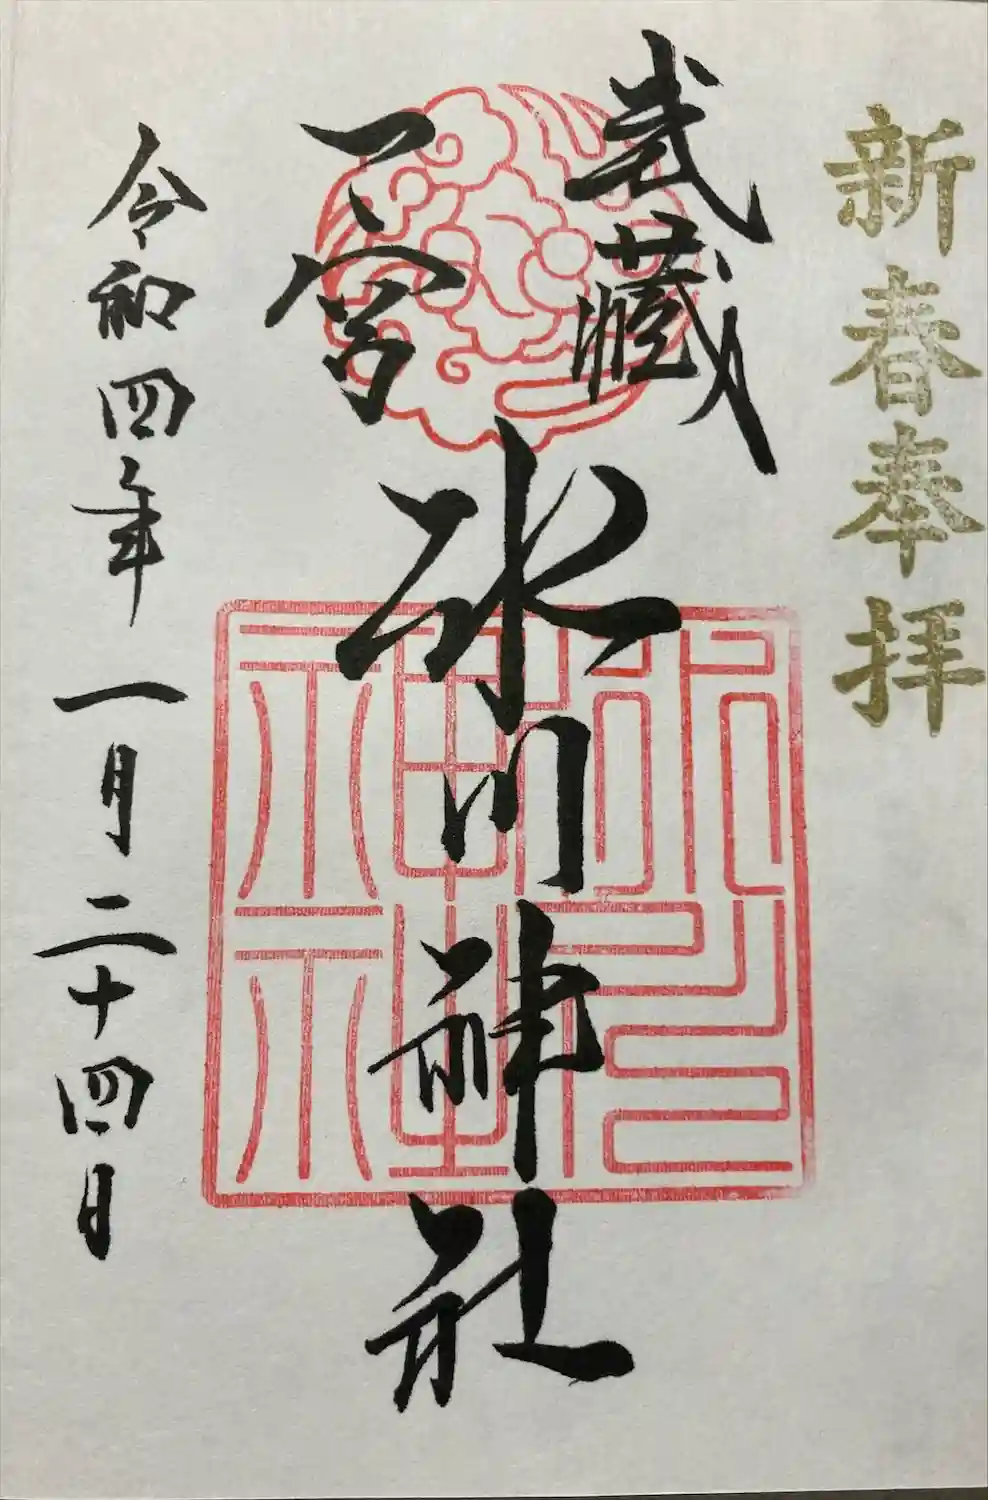 新春奉拝
武蔵
一宮
氷川神社
令和四年一月二十四日
氷川神社